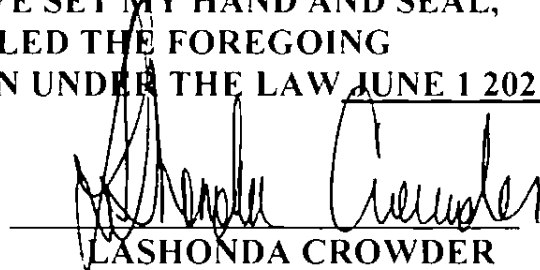 VE SET MY HAND AND SEAL,
LED THE FOREGOING
N UNDER THE LAW JUNE 1 202
Lashonda Crowder
LASHONDA CROWDER